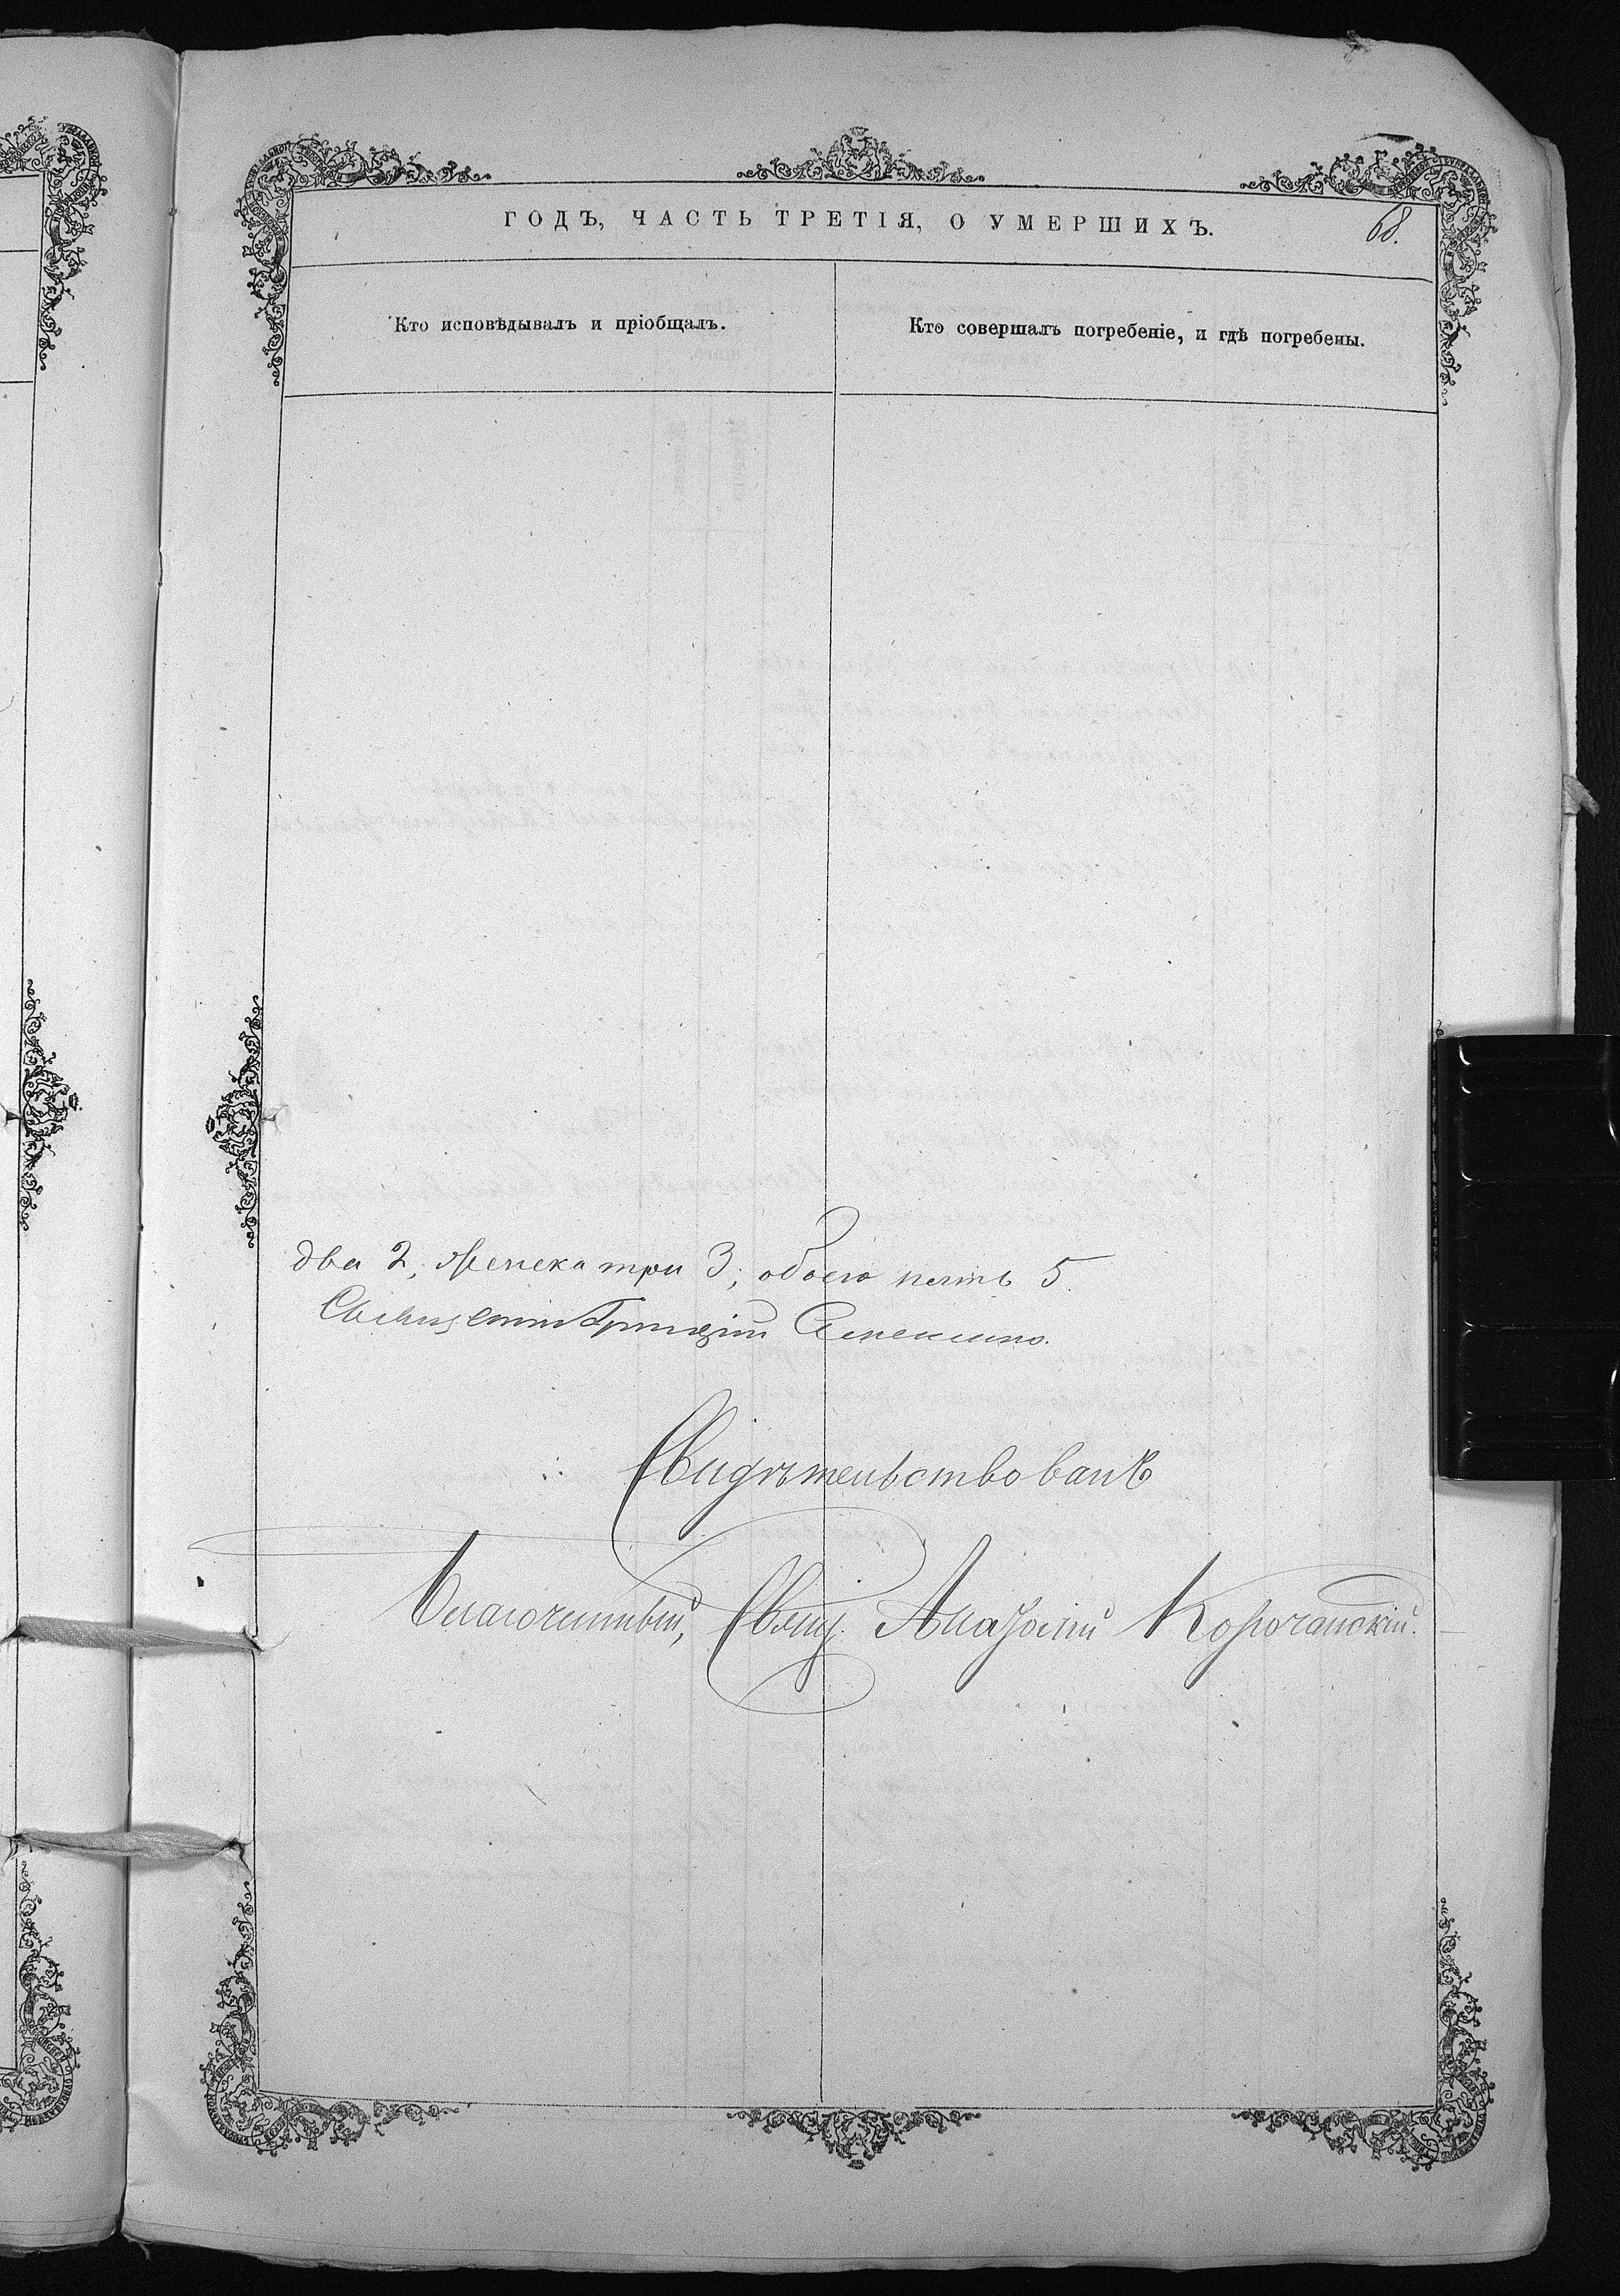 ГОДЪ, ЧАСТЬ ТРЕТІЯ, О УМЕРШИХЪ.
68.
Кто исповѣдывалъ и пріобщалъ.
Кто совершалъ погребеніе, и гдѣ погребены.
два 2, женска три 3, обоего пять 5.
Свидѣтельствовалъ
Благочинный, Свящ. Корочанскій.